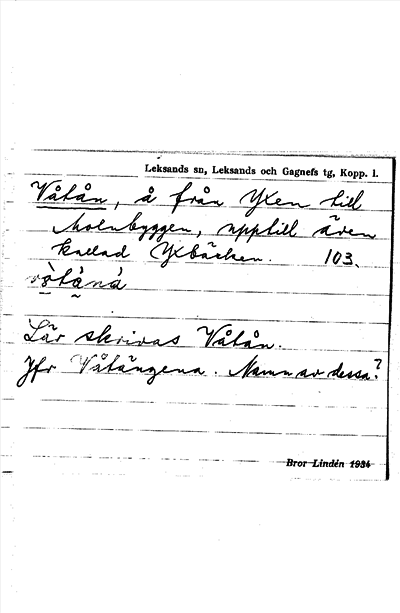 Leksands sn, Leksands och Gagnefs tg, Kopp. l.
Våtån, å från Yxen till
Molnbyggen, upptill även
kallad Yxbäcken. 103.
Lär skrivas Våtån.
Jfr Våtängena. Namn av dessa?
Bror Lindén 1934